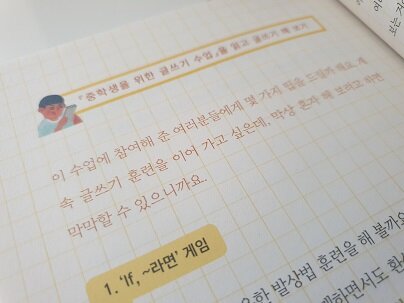 『중학생을 위한 글쓰기 수업』을 읽고 글쓰기 해 보기
이 수업에 참여해 준 여러분들에게 몇 가지 팁을 드릴까 해요. 계
속 글쓰기 훈련을 이어 가고 싶은데, 막상 혼자 해 보려고 하면
막막할 수 있으니까요.
1. 'If, ~라면' 게임
발상법 훈련을 해 볼까요
보는